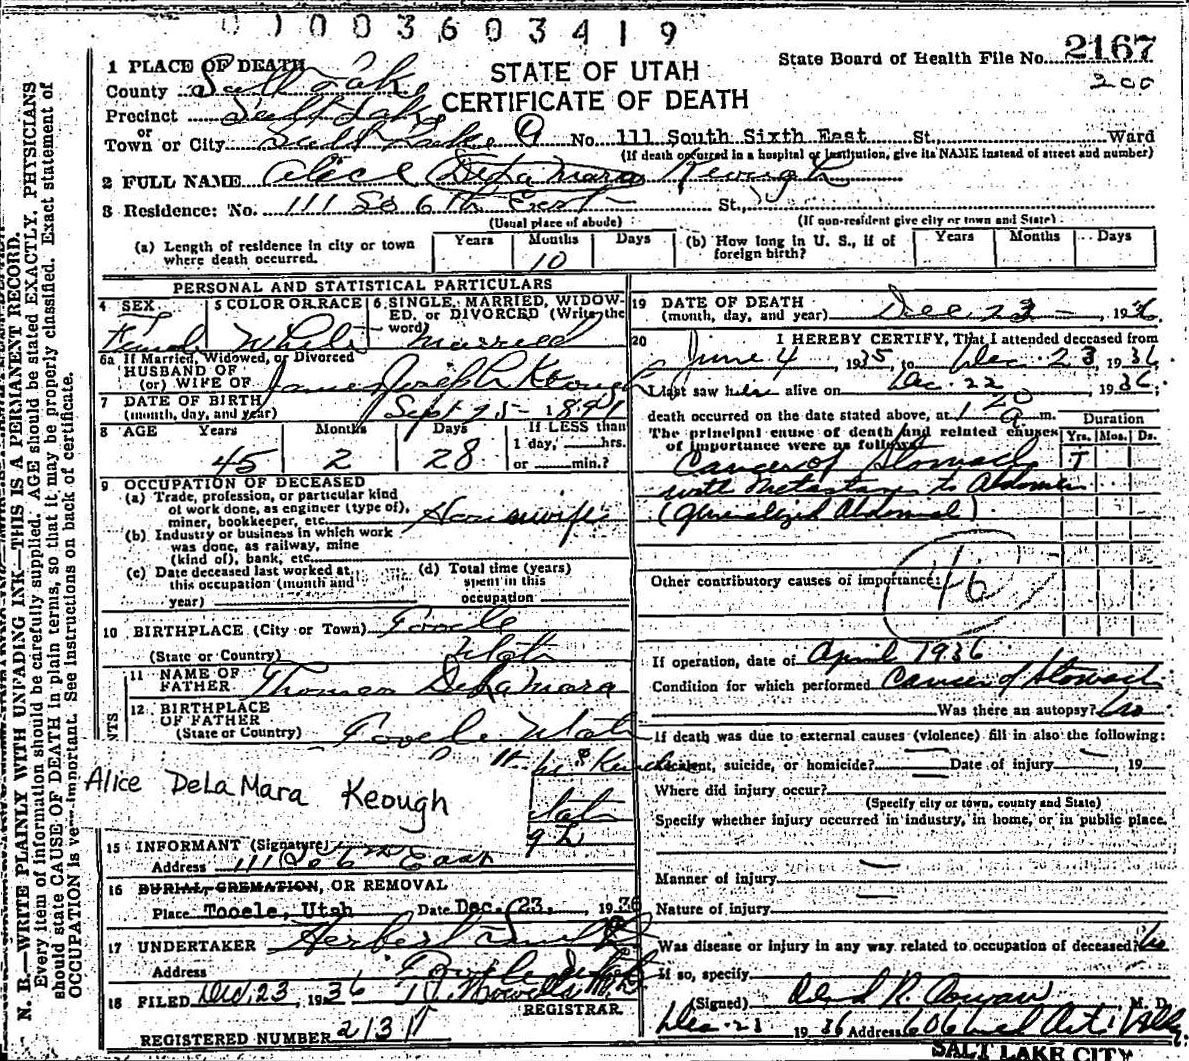 0 0 0 3 6 0 3 4 1 9
State Board of Health File No. 2167
200
STATE OF UTAH
CERTIFICATE OF DEATH
1 PLACE OF DEATH
County Salt Lake
Precinct Salt Lake
or
Town or City Salt Lake No. 111 South Sixth East St. Ward
(If death occurred in a hospital or institution, give its NAME instead of street and number)
2 FULL NAME Alice DeLaMara Keough
3 Residence: No. 111 So 6th East St.,
(Usual place of abode) (If non-resident give city or town and State)
(a) Length of residence in city or town where death occurred. Years Months 10 Days
(b) How long in U. S., if of foreign birth? Years Months Days
PERSONAL AND STATISTICAL PARTICULARS
4 SEX Female
5 COLOR OR RACE White
6 SINGLE, MARRIED, WIDOWED, or DIVORCED (Write the word) Married
6a If Married, Widowed, or Divorced
HUSBAND OF
(or) WIFE OF James Joseph Keough
7 DATE OF BIRTH
(month, day, and year) Sept 25 - 1891
8 AGE Years 45 Months 2 Days 28
If LESS than
1 day, hrs.
or min.?
9 OCCUPATION OF DECEASED
(a) Trade, profession, or particular kind
of work done, as engineer (type of),
miner, bookkeeper, etc. Housewife
(b) Industry or business in which work
was done, as railway, mine
(kind of), bank, etc.
(c) Date deceased last worked at
this occupation (month and
year)
(d) Total time (years)
spent in this
occupation
10 BIRTHPLACE (City or Town) Tooele
(State or Country) Utah
11 NAME OF
FATHER Thomas DeLaMara
12 BIRTHPLACE
OF FATHER
(State or Country) Tooele Utah
NTS
Alice DeLaMara Keough
15 INFORMANT (Signature)
Address 111 So 6th East
16 BURIAL, CREMATION, OR REMOVAL
Place Tooele, Utah Date Dec. 23, 1936
17 UNDERTAKER Herbert
Address Tooele Utah
18 FILED Dec, 23, 1936
REGISTRAR
REGISTERED NUMBER
19 DATE OF DEATH
(month, day, and year) Dec. 23 - , 1936
20 I HEREBY CERTIFY, That I attended deceased from
June 4, 1935, to Dec. 23, 1936
I last saw her alive on Dec. 22, 1936;
death occurred on the date stated above, at 1 20 a m.
The principal cause of death and related causes
of importance were as follows:
Duration
Yrs. Mos. Ds.
Cancer of Stomach
with Metastases to Abdomen
(Generalized Abdominal)
Other contributory causes of importance:
46
If operation, date of April 1936
Condition for which performed Cancer of Stomach
Was there an autopsy? No
If death was due to external causes (violence) fill in also the following:
suicide, or homicide? Date of injury , 19
Where did injury occur?
(Specify city or town, county and State)
Specify whether injury occurred in industry, in home, or in public place.
Manner of injury
Nature of injury
Was disease or injury in any way related to occupation of deceased? No
If so, specify
(Signed) M. D.
Dec-23 1936 Address 606 Med Arts Bldg
SALT LAKE CITY
N. B.—WRITE PLAINLY WITH UNFADING INK—THIS IS A PERMANENT RECORD.
Every item of information should be carefully supplied. AGE should be stated EXACTLY. PHYSICIANS
should state CAUSE OF DEATH in plain terms, so that it may be properly classified. Exact statement of
OCCUPATION is very important. See instructions on back of certificate.